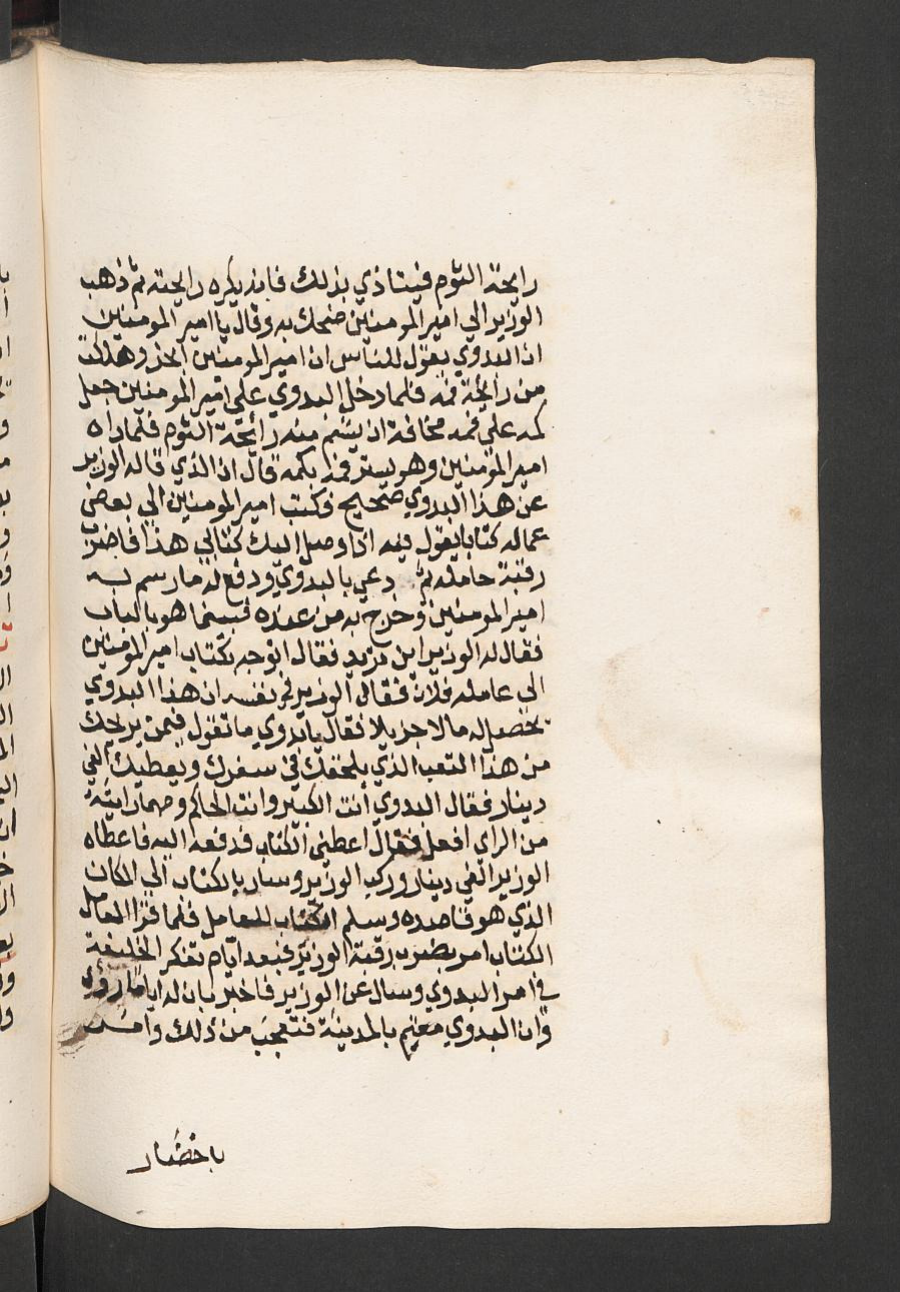 رايحة الثوم فيتاذي بذلك فانه يكره رايحته ثم ذهب
الوزير الي امير المومنين ضحك به وقال يا امير المومنين
ان البدوي يقول للناس ان امير المومنين ابخر وهلكت
من رائحة فمه فلما دخل البدوي علي امير المومنين جعل
كمه علي فمه مخافة ان يشم منه رائحة الثوم فلما راه
امير المومنين وهو يستر فمه بكمه قال ان الذي قاله الوزير
عن هذا البدوي صحيح فكتب امير المومنين الي بعض
عماله كتابا يقول فيه اذا وصل اليك كتابي هذا فاضرب
رقبة حامله ثم دعي بالبدوي ودفع له ما رسم له
امير المومنين وخرج به من عنده فبينما هو بالباب
فقال له الوزير اين تريد فقال اتوجه بكتاب امير المومنين
الي عامله فلان فقال الوزير في نفسه ان هذا البدوي
يحصل له مالا جزيلا فقال يا بدوي ما تقول فيمن يريحك
من هذا التعب الذي يلحقك في سفرك ويعطيك الفي
دينار فقال البدوي انت الكبير وانت الحاكم ومهما رايته
من الراي افعل فقال اعطني الكتاب فدفعه اليه فاعطاه
الوزير الفي دينار وركب الوزير وسار بالكتاب الي المكان
الذي هو قاصده وسلم الكتاب للعامل فلما قرا العامل
الكتاب امر بضرب رقبة الوزير فبعد ايام تفكر الخليفة
في امر البدوي وسال عن الوزير فاخبر بان له اياما ما رؤي
وان البدوي مقيم بالمدينة فتعجب من ذلك وامر
باحضار